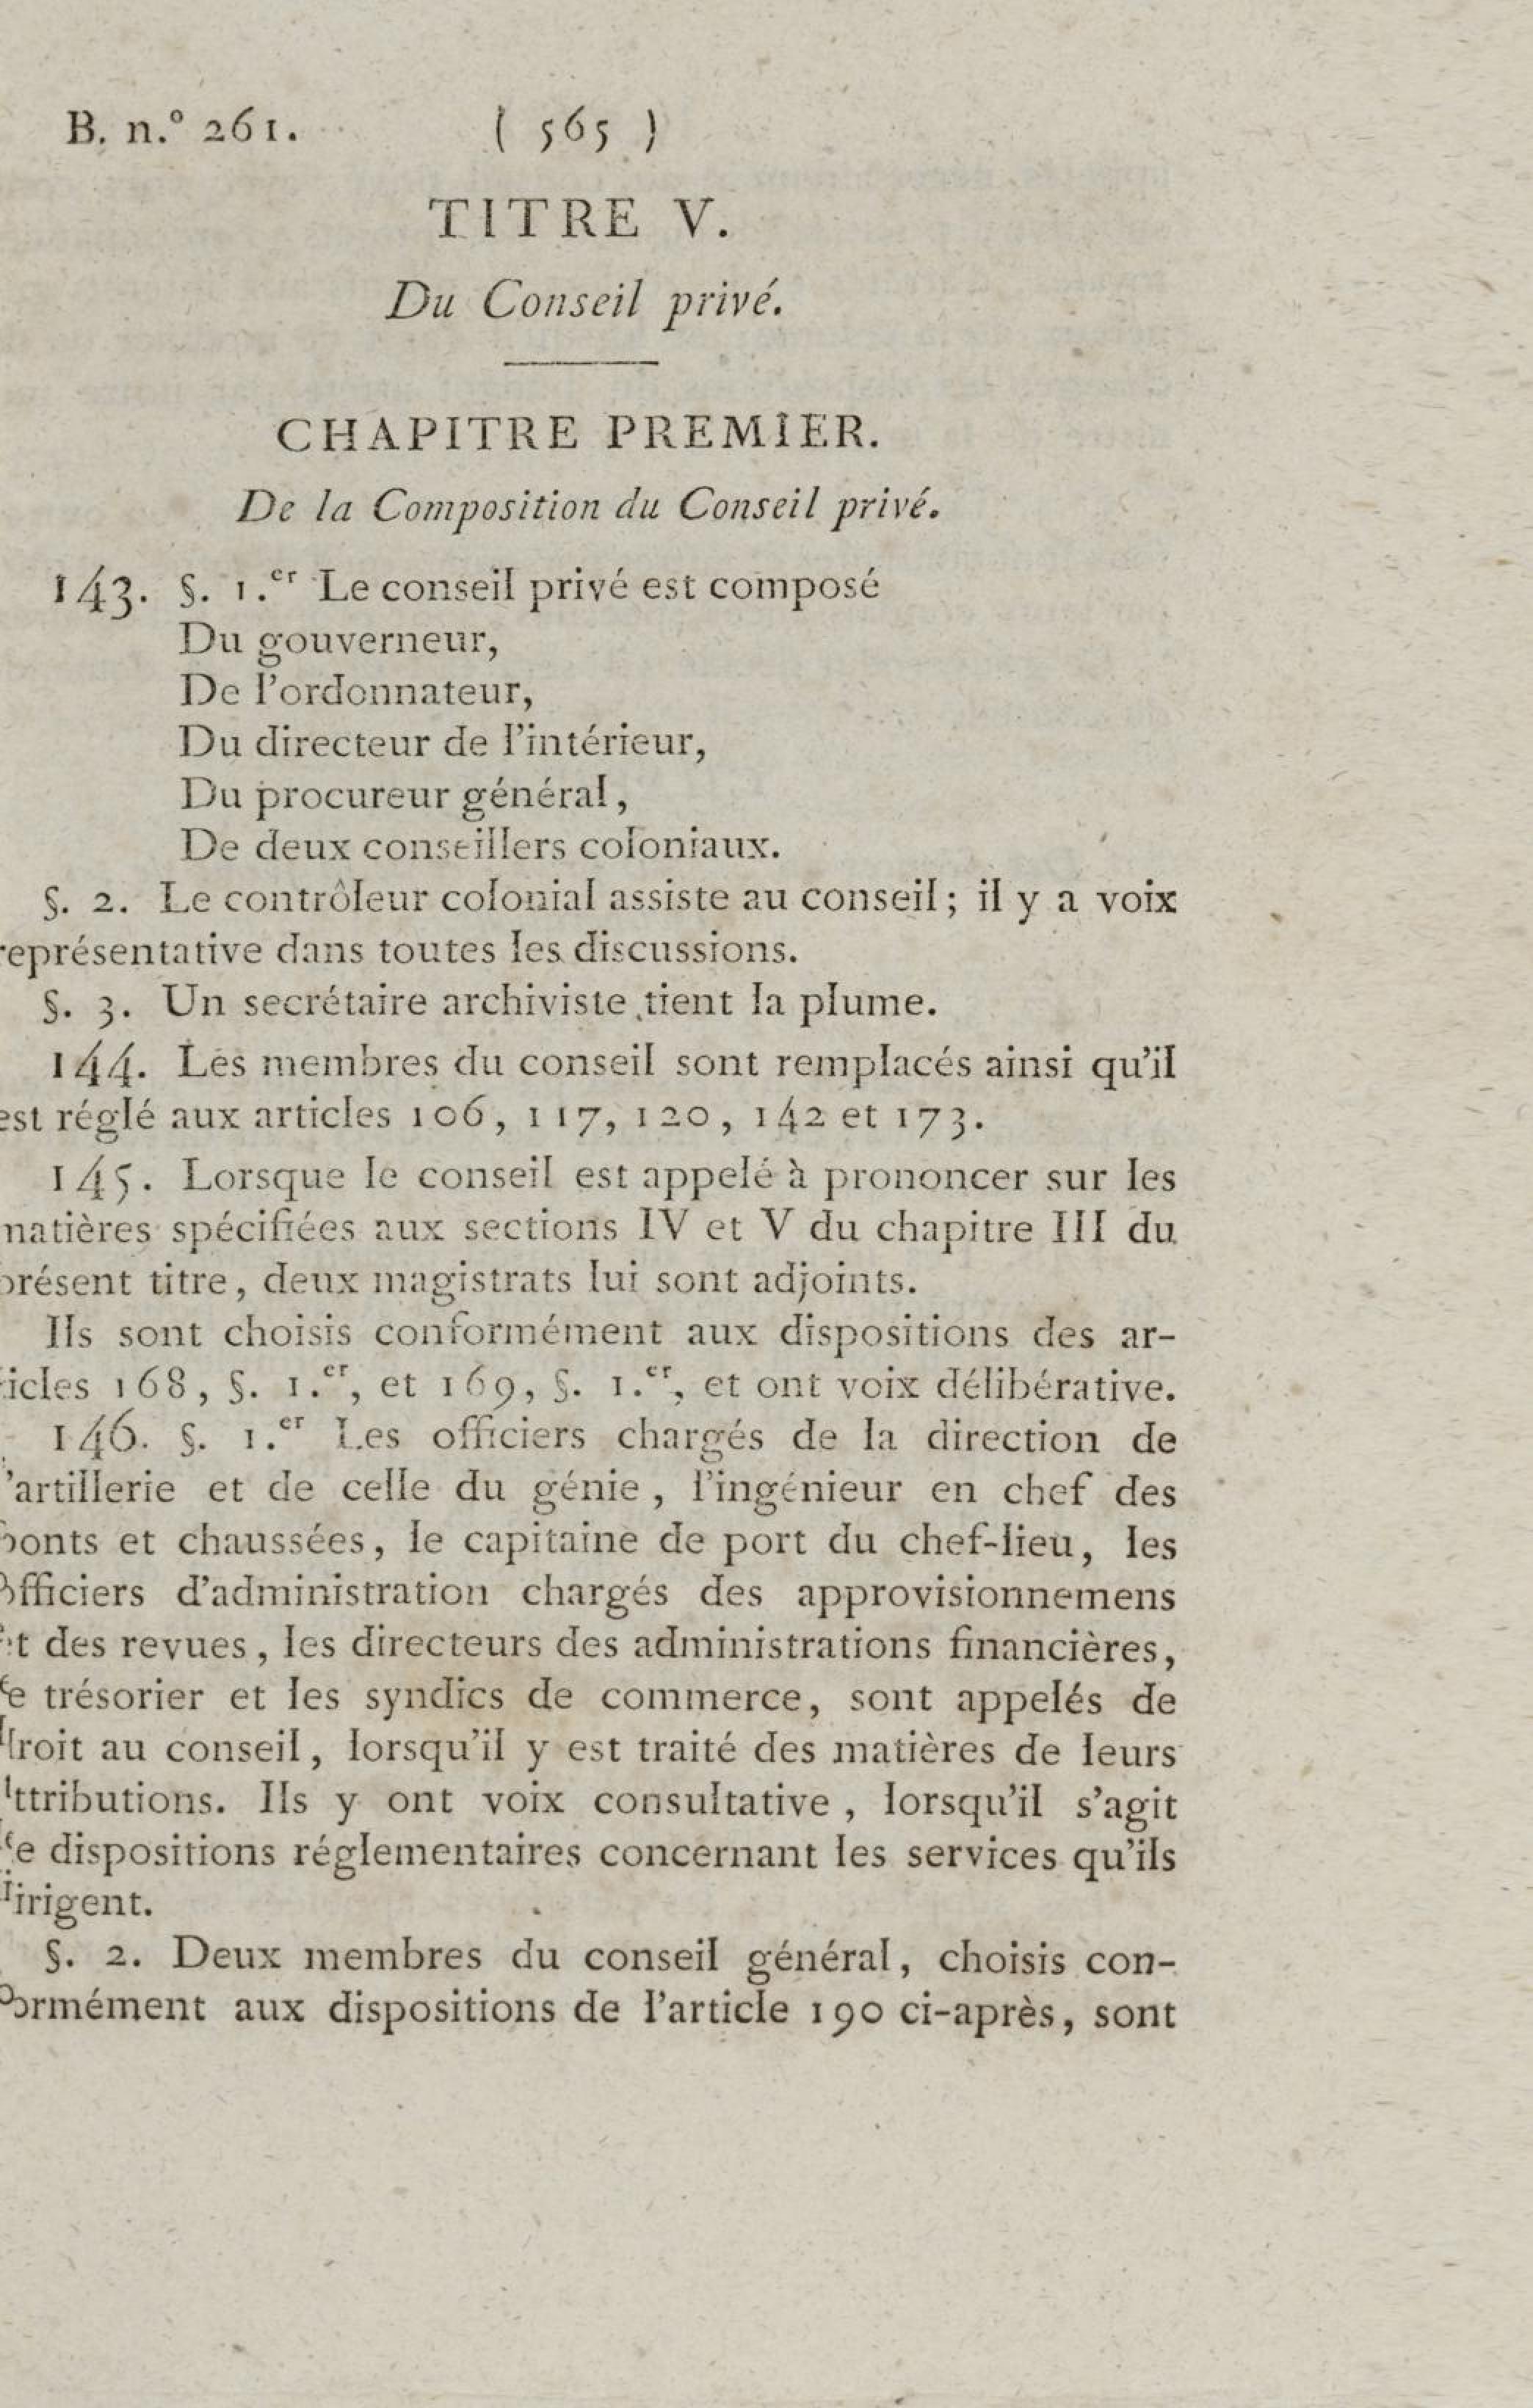 B. n.° 261. ( 565 )
TITRE V.
Du Conseil privé.
CHAPITRE PREMIER.
De la Composition du Conseil privé.
143. §. 1.er Le conseil privé est composé
Du gouverneur,
De l'ordonnateur,
Du directeur de l'intérieur,
Du procureur général,
De deux conseillers coloniaux.
§. 2. Le contrôleur colonial assiste au conseil; il y a voix
représentative dans toutes les discussions.
§. 3. Un secrétaire archiviste tient la plume.
144. Les membres du conseil sont remplacés ainsi qu'il
est réglé aux articles 106, 117, 120, 142 et 173.
145. Lorsque le conseil est appelé à prononcer sur les
matières spécifiées aux sections IV et V du chapitre III du
présent titre, deux magistrats lui sont adjoints.
Ils sont choisis conformément aux dispositions des ar-
ticles 168, §. 1.er, et 169, §. 1.er, et ont voix délibérative.
146. §. 1.er Les officiers chargés de la direction de
l'artillerie et de celle du génie, l'ingénieur en chef des
ponts et chaussées, le capitaine de port du chef-lieu, les
officiers d'administration chargés des approvisionnemens
et des revues, les directeurs des administrations financières,
le trésorier et les syndics de commerce, sont appelés de
droit au conseil, lorsqu'il y est traité des matières de leurs
attributions. Ils y ont voix consultative, lorsqu'il s'agit
de dispositions réglementaires concernant les services qu'ils
dirigent.
§. 2. Deux membres du conseil général, choisis con-
formément aux dispositions de l'article 190 ci-après, sont